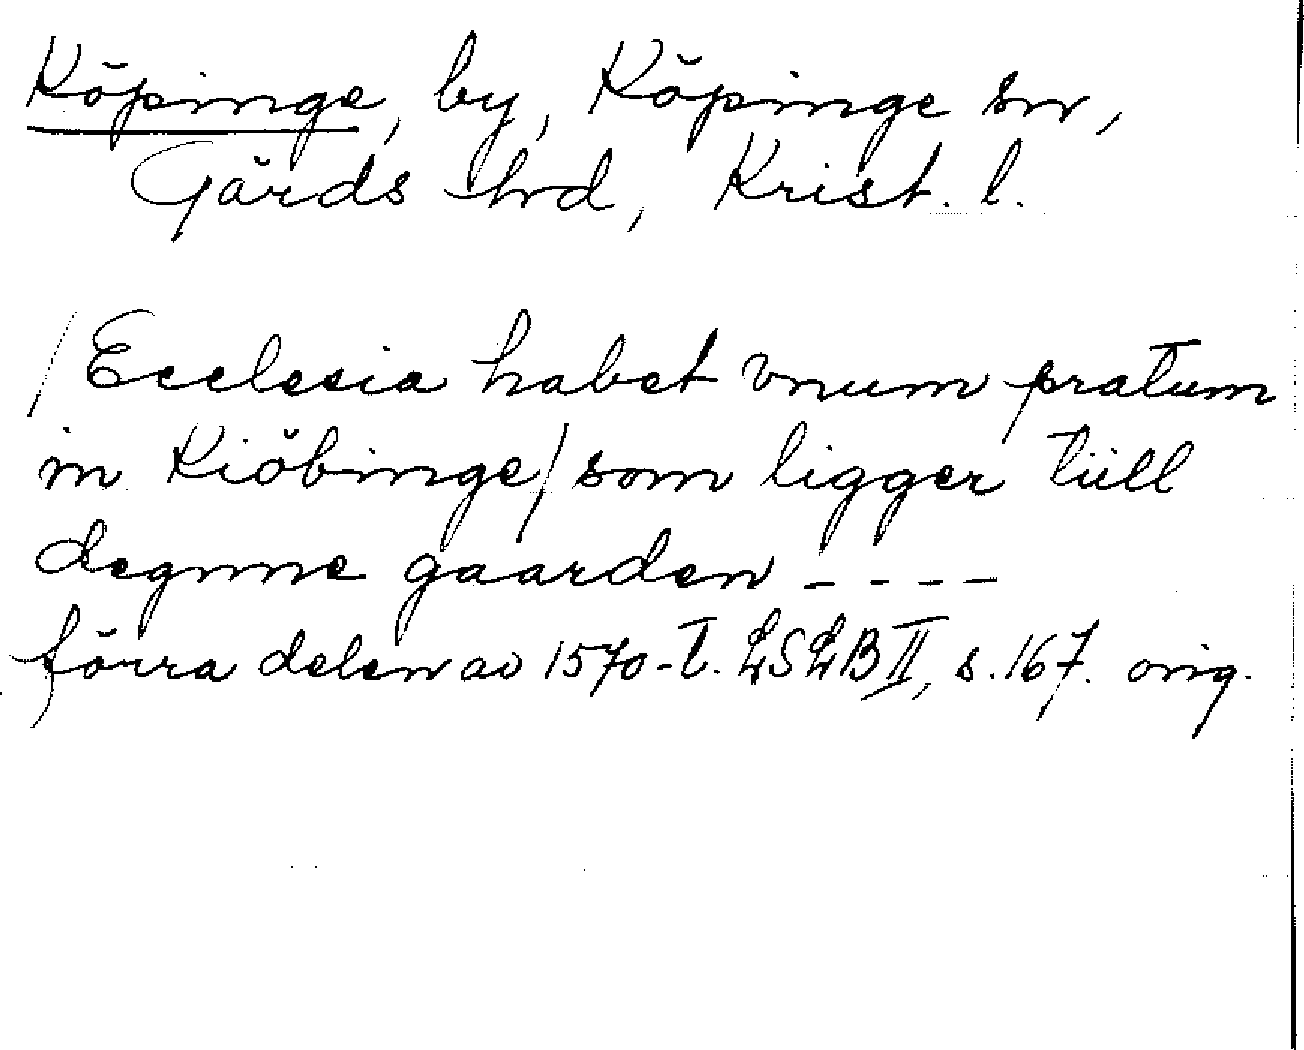 Köpinge, by, Köpinge sn,
Gärds hd, Krist. l.
/Ecclesia habet vnum pratum
in Kiöbinge/ som ligger tiill
degnne gaarden ----
förra delen av 1570-t. LSLB II, s. 167. orig.